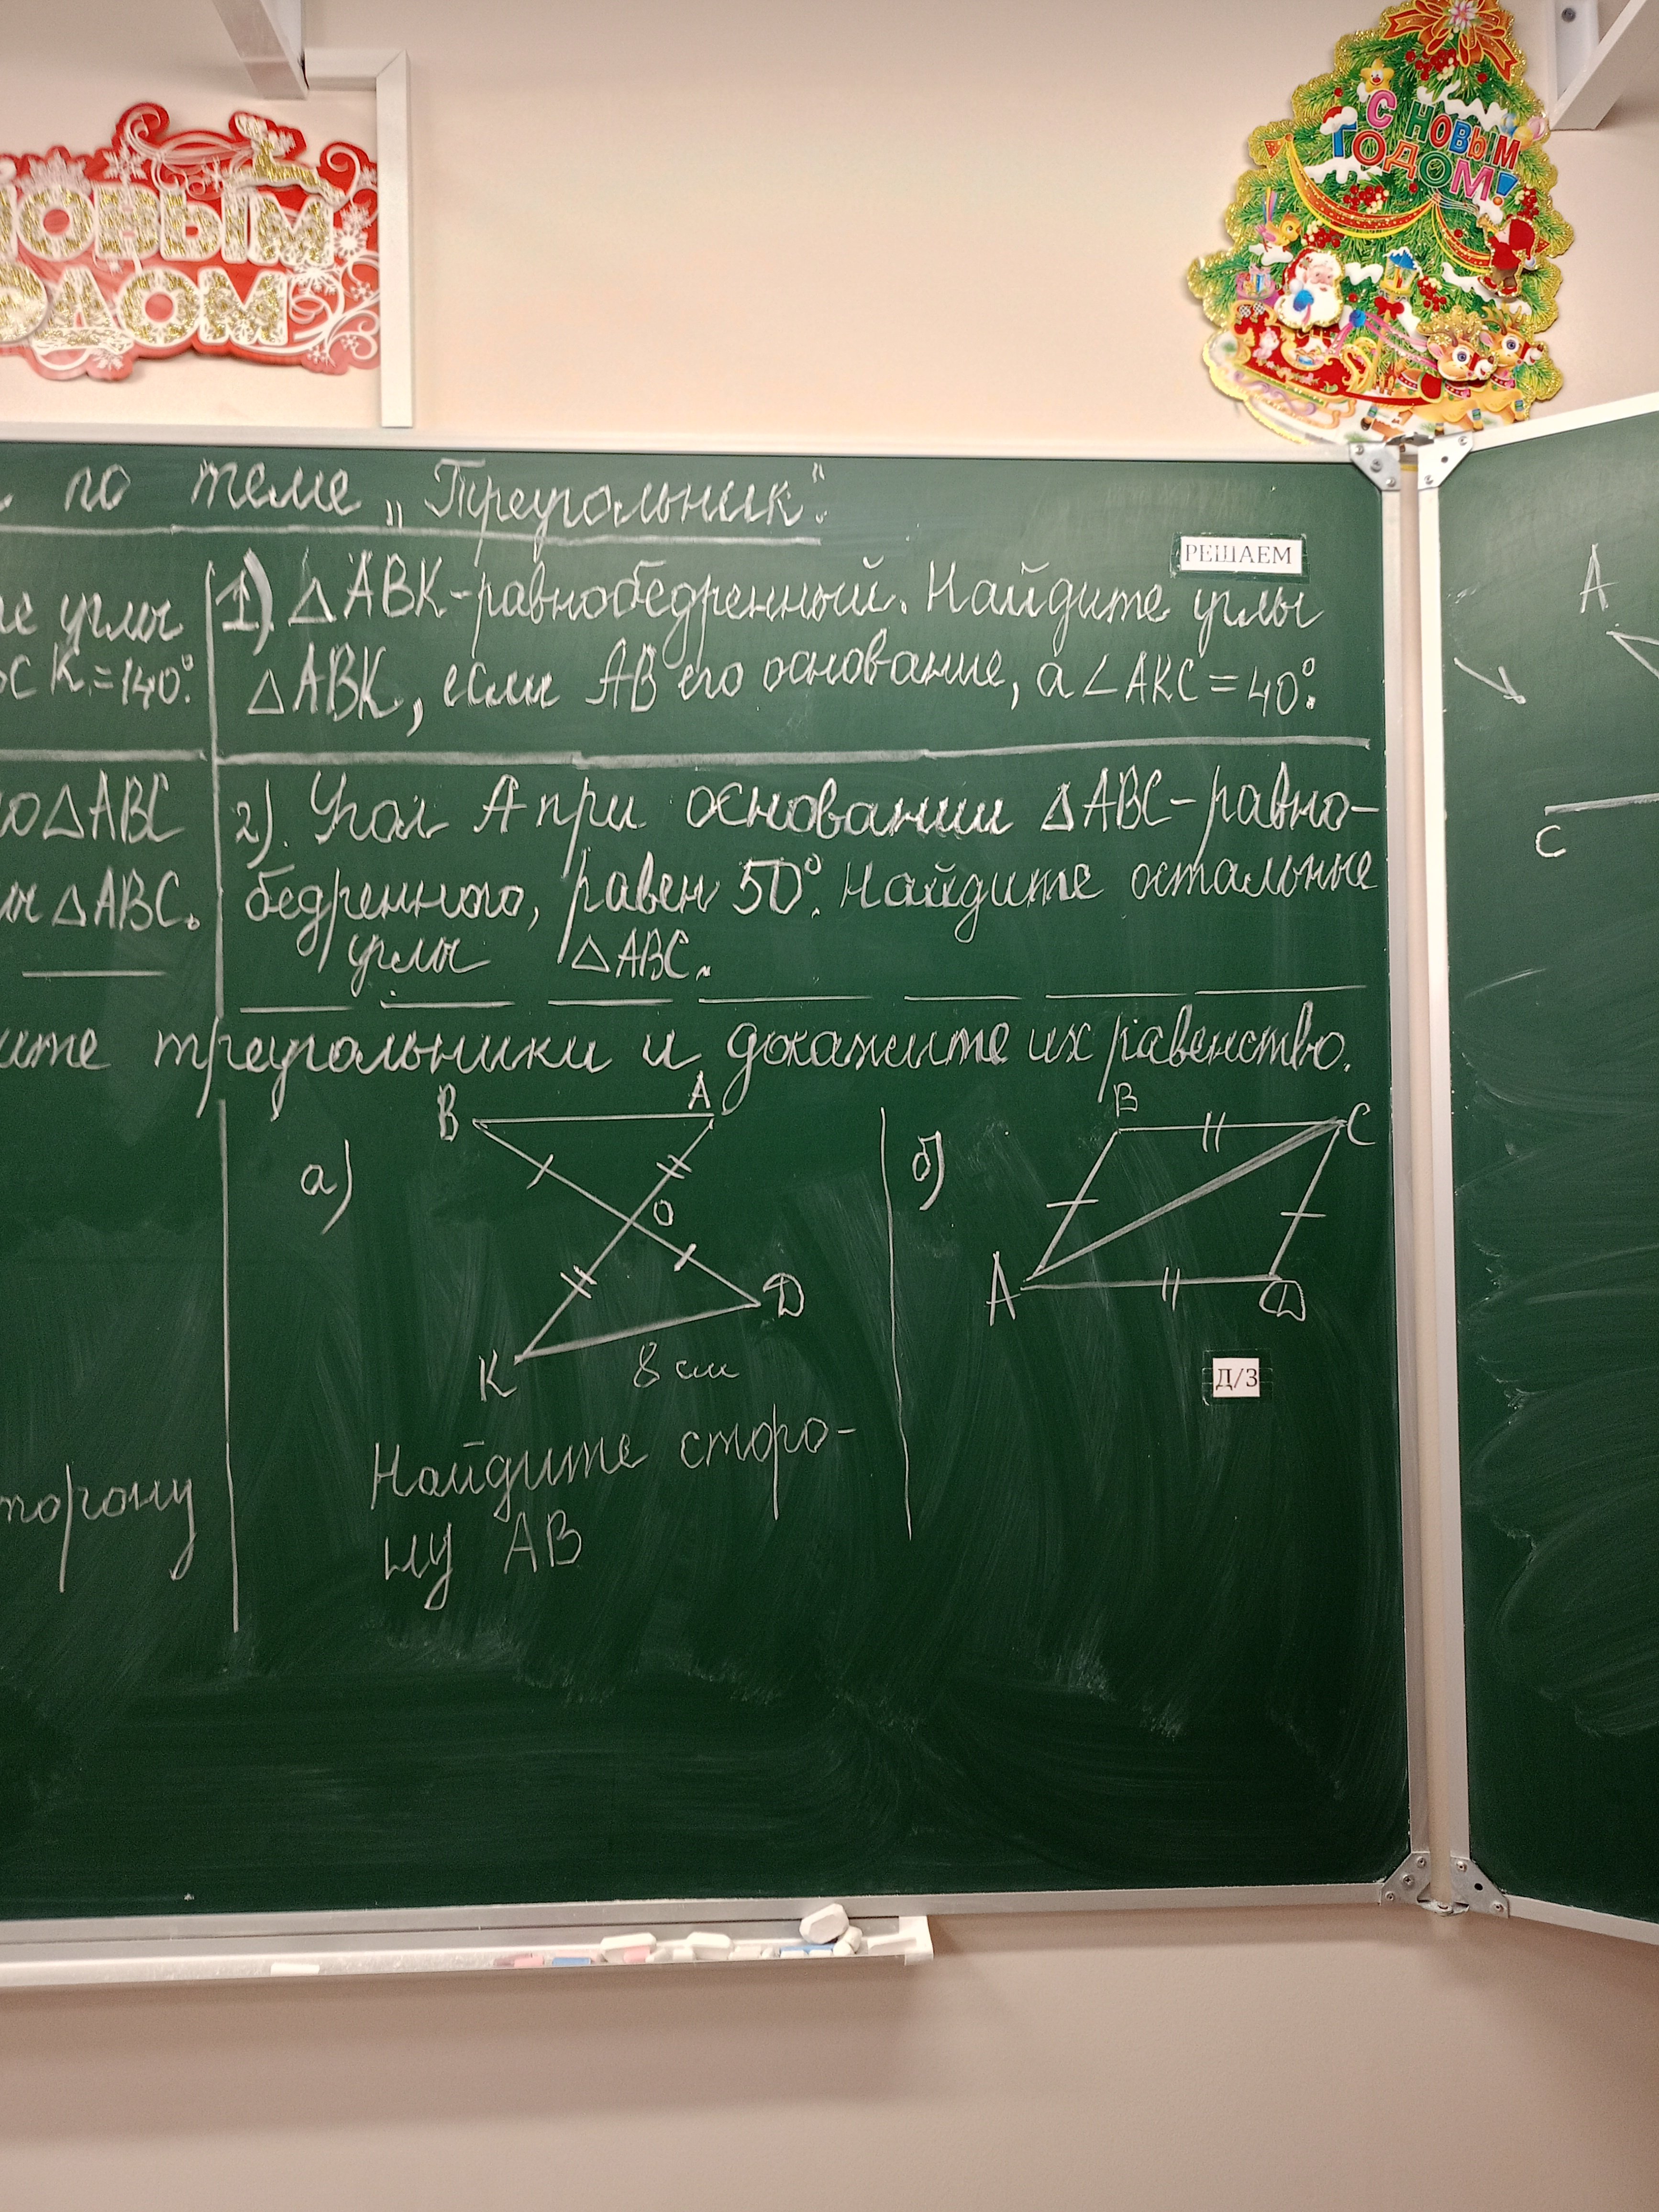 НОВЫМ
ГОДОМ
С НОВЫМ
ГОДОМ!
по теме „Треугольник".
РЕШАЕМ
углы
K = 140°.
△ABC
△ABC.
1) △ABK - равнобедренный. Найдите углы
△ABK, если AB его основание, а ∠AKC = 40°.
2). Угол A при основании △ABC - равно-
бедренного, равен 50°. Найдите остальные
углы △ABC.
треугольники и докажите их равенство.
а)
B
A
O
K
D
8 см
Найдите сторо-
ну AB
б)
B
C
A
D
Д/З
A
C